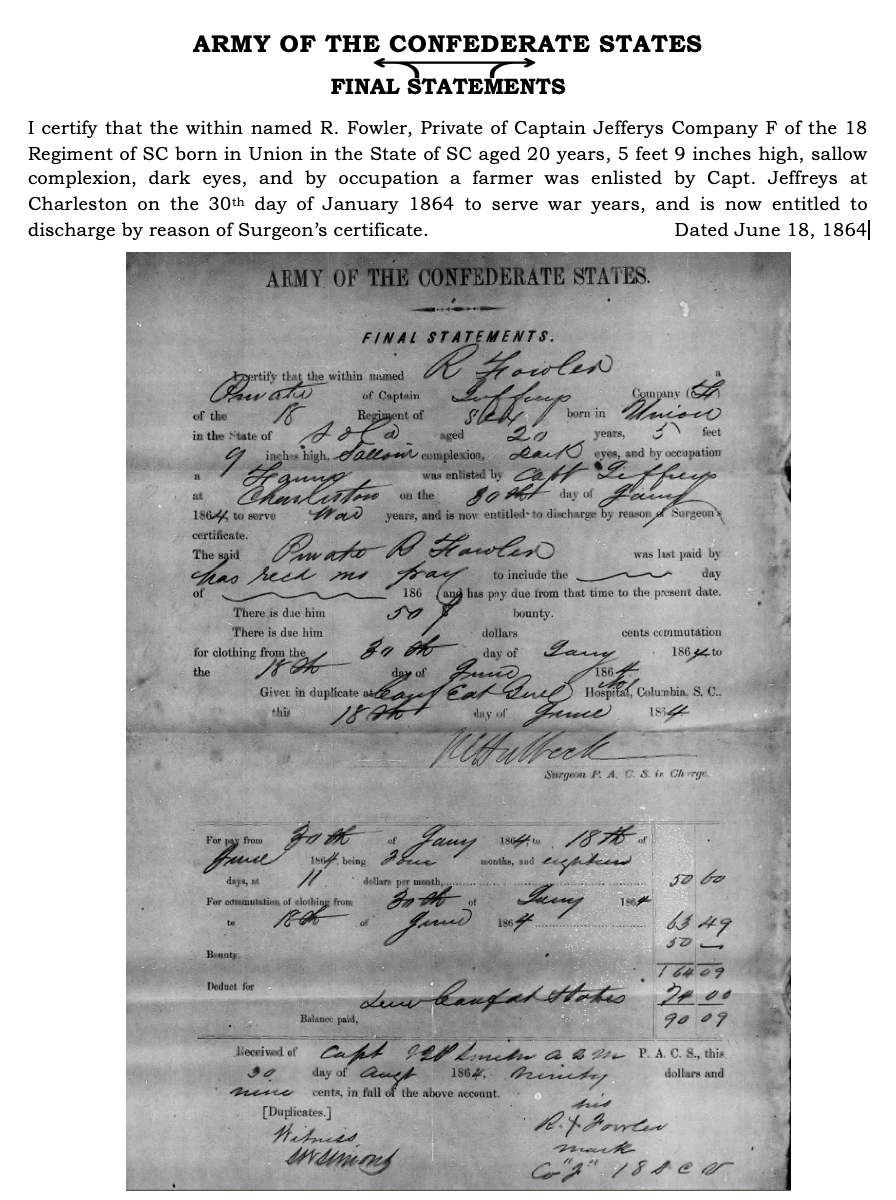 ARMY OF THE CONFEDERATE STATES
FINAL STATEMENTS
I certify that the within named R. Fowler, Private of Captain Jefferys Company F of the 18
Regiment of SC born in Union in the State of SC aged 20 years, 5 feet 9 inches high, sallow
complexion, dark eyes, and by occupation a farmer was enlisted by Capt. Jeffreys at
Charleston on the 30th day of January 1864 to serve war years, and is now entitled to
discharge by reason of Surgeon's certificate. Dated June 18, 1864
ARMY OF THE CONFEDERATE STATES.
FINAL STATEMENTS.
I certify that the within named R Fowler a
Private of Captain Jefferys Company (F
of the 18 Regiment of born in Union
in the State of So Ca aged 20 years, 5 feet
9 inches high, Sallow complexion, Dark eyes, and by occupation
a was enlisted by Capt Jeffreys
at Charleston on the 30th day of Jany
1864, to serve War years, and is now entitled to discharge by reason of Surgeon's
certificate.
The said Private R Fowler was last paid by
has recd no pay to include the day
of 186 (and has pay due from that time to the present date.
There is due him 50 $ bounty.
There is due him dollars cents commutation
for clothing from the 30th day of Jany 1864 to
the 18th day of June 1864
Given in duplicate at Hospital, Columbia. S. C.,
this 18th day of June 1864
Surgeon P. A. C. S. in Charge.
For pay from 30th of Jany 1864 to 18th of
June 1864 being Four months, and eighteen
days, at 11 dollars per month, 50 60
For commutation of clothing from 30th of Jany 1864
to 18th of June 1864 63 49
50 —
Bounty.
164 09
Deduct for due Confed States 74 00
Balance paid, 90 09
Received of Capt Smith P. A. C. S., this
30 day of Augt 1864, Ninety dollars and
nine cents, in full of the above account.
[Duplicates.]
his
R. X Fowler
mark
Witness
Co 18 S C V